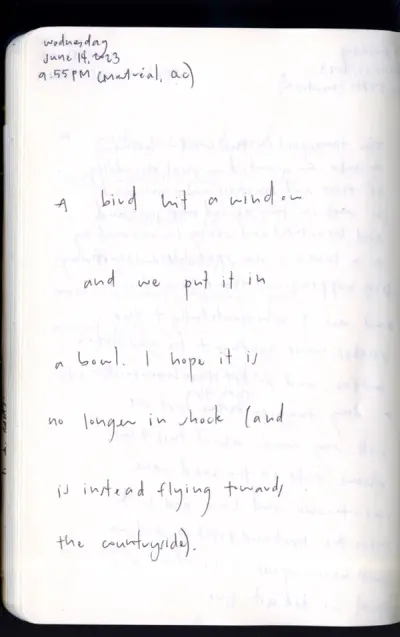 Wednesday
June 14, 2023
9:55 PM (Montréal, QC)
A bird hit a window
and we put it in
a bowl. I hope it is
no longer in shock (and
is instead flying towards
the countryside).